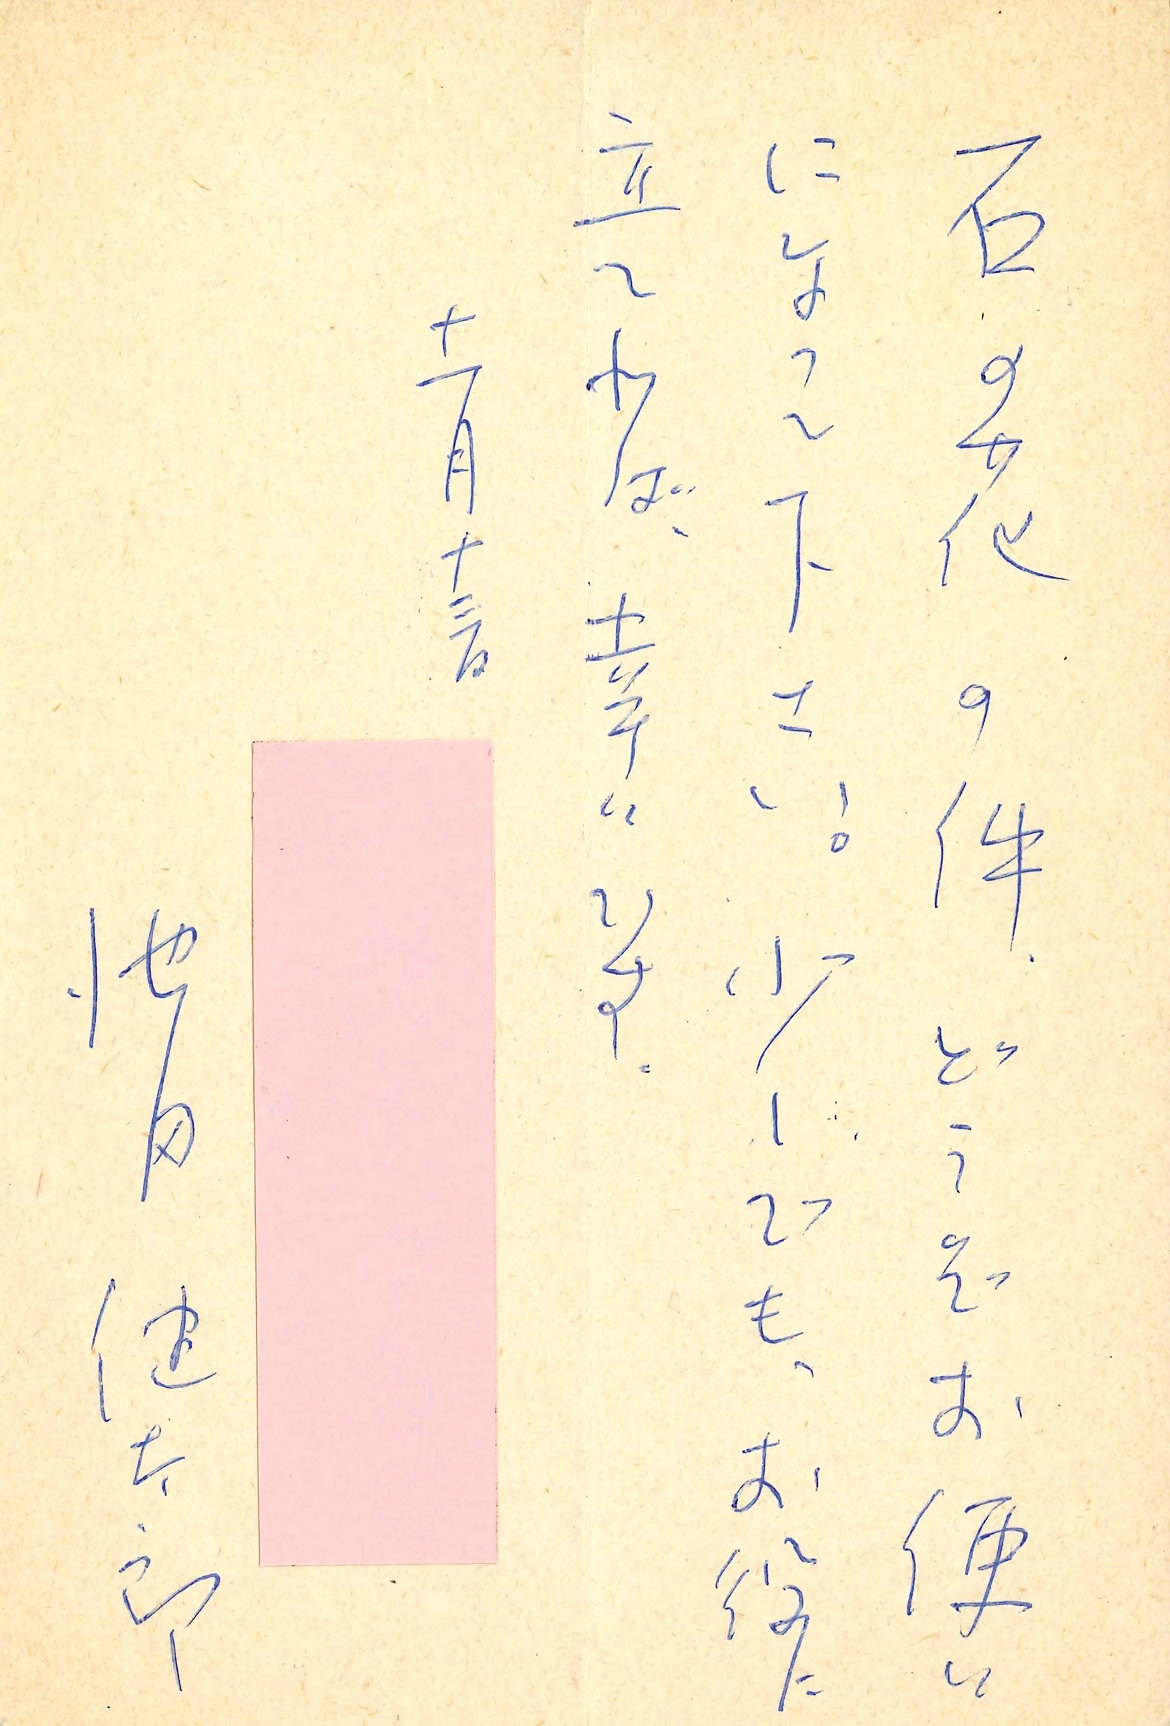 の件.どうぞお使い
になって下さい。少しでも、お役に
立てれば、幸いです.
十一月十三日
池田健太郎